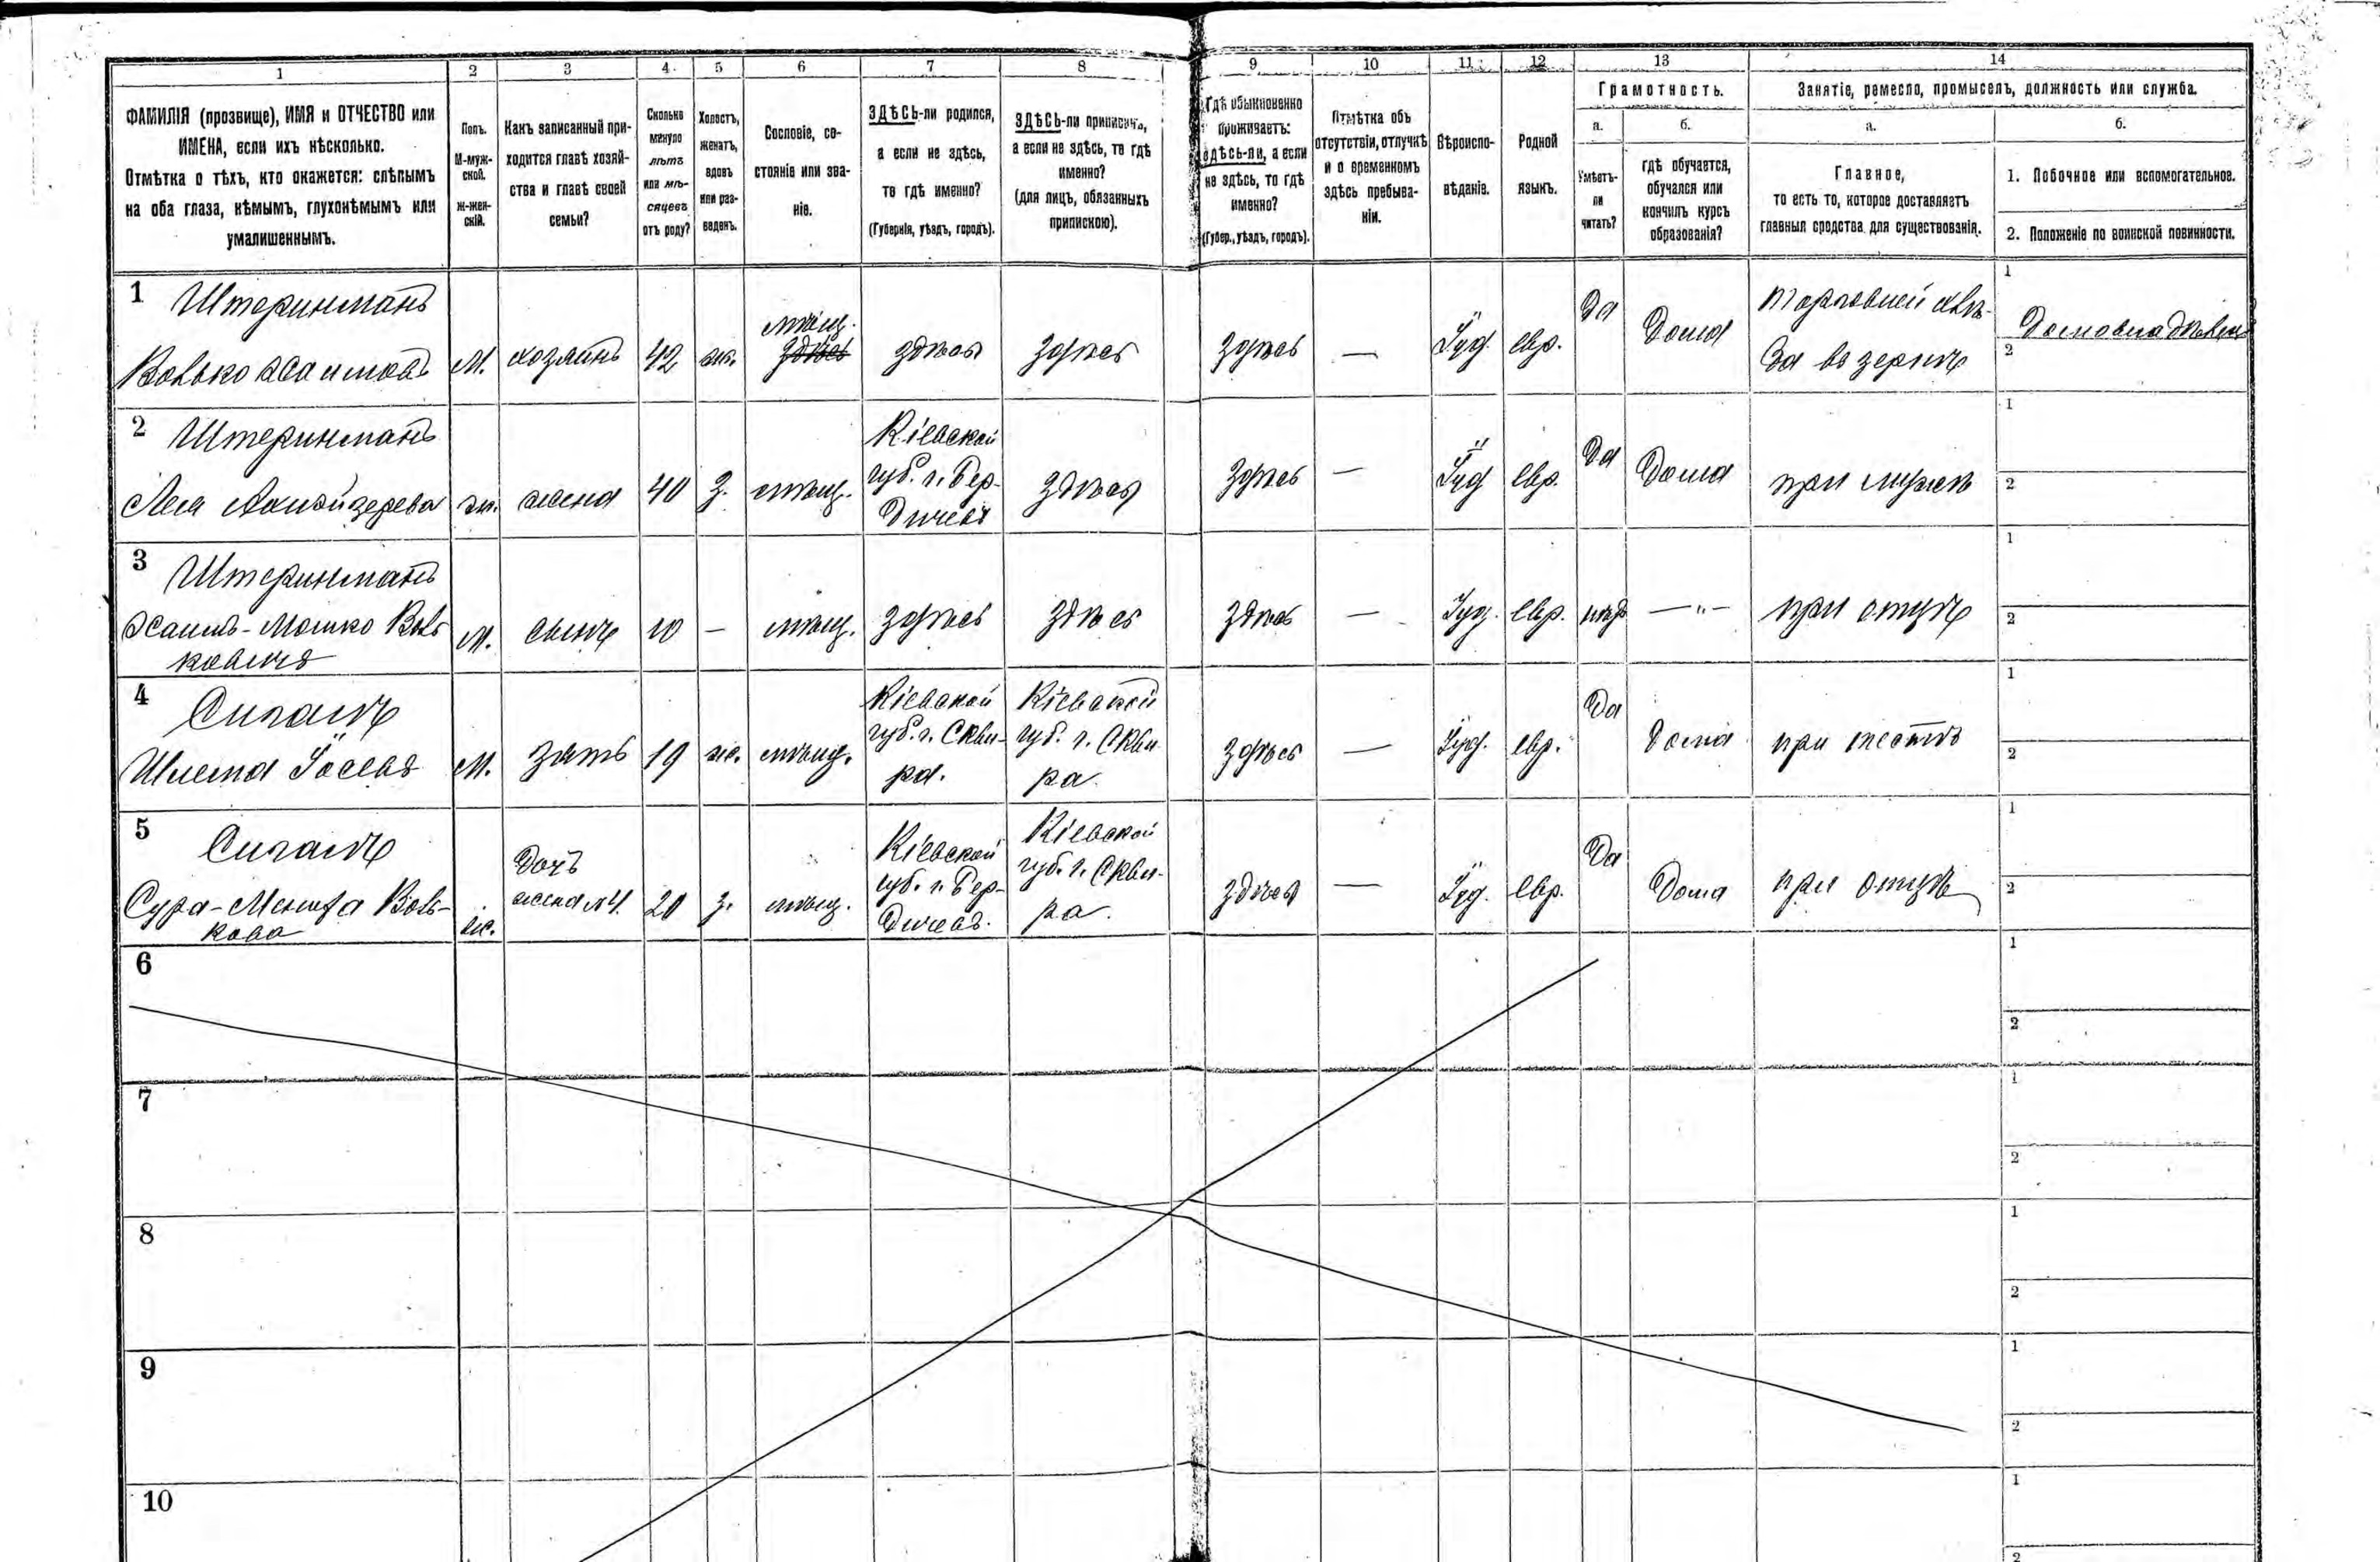 1 2 3 4 5 6 7 8 9 10 11 12 13 14
ФАМИЛІЯ (прозвище), ИМЯ и ОТЧЕСТВО или
ИМЕНА, если ихъ нѣсколько.
Отмѣтка о тѣхъ, кто окажется: слѣпымъ
на оба глаза, нѣмымъ, глухонѣмымъ или
умалишеннымъ.
Полъ.
М-муж-
ской.
Ж-жен-
скій.
Какъ записанный при-
ходится главѣ хозяй-
ства и главѣ своей
семьи?
Сколько
минуло
лѣтъ
или мѣ-
сяцевъ
отъ роду?
Холостъ,
женатъ,
вдовъ
или раз-
веденъ.
Сословіе, со-
стояніе или зва-
ніе.
ЗДѢСЬ-ли родился,
а если не здѣсь,
то гдѣ именно?
(Губернія, уѣздъ, городъ).
ЗДѢСЬ-ли приписанъ,
а если не здѣсь, то гдѣ
именно?
(для лицъ, обязанныхъ
припискою).
Гдѣ обыкновенно
проживаетъ:
здѣсь-ли, а если
не здѣсь, то гдѣ
именно?
(Губер., уѣздъ, городъ).
Отмѣтка объ
отсутствіи, отлучкѣ
и о временномъ
здѣсь пребыва-
ніи.
Вѣроиспо-
вѣданіе.
Родной
языкъ.
Грамотность.
а.
Умѣетъ-
ли
читать?
б.
гдѣ обучается,
обучался или
кончилъ курсъ
образованія?
Занятіе, ремесло, промыселъ, должность или служба.
а.
Главное,
то есть то, которое доставляетъ
главныя средства для существованія.
б.
1. Побочное или вспомогательное.
2. Положеніе по воинской повинности.
1 Штеринманъ
Волько М. хозяинъ 42 ж.
мѣщ.
здѣсь
здѣсь здѣсь здѣсь — Іуд. евр. Да Дома
Торговлей
1
Домовладѣлец
2
2 Штеринманъ
Лея ж. жена 40 З. мѣщ.
Кіевской
губ. г. Бер-
дичевъ
здѣсь здѣсь — Іуд евр. Да Дома при мужѣ
1
2
3 Штеринманъ
Мошко Воль
ковичъ
М. сынъ 10 — мѣщ. здѣсь здѣсь здѣсь — Іуд. евр. нѣтъ — " — при отцѣ
1
2
4 Сигалъ
Шлема Іосевъ М. зять 19 ж. мѣщ.
Кіевской
губ. г. Скви-
ра.
Кіевской
губ. г. Скви
ра.
здѣсь — Іуд. евр. Да Дома при тестѣ
1
2
5 Сигалъ
Сура- Воль-
кова
ж.
Дочь
жена №4. 20 З. мѣщ.
Кіевской
губ. г. Бер-
дичевъ.
Кіевской
губ. г. Скви-
ра.
здѣсь — Іуд. евр. Да Дома при отцѣ
1
2
6
1
2
7
1
2
8
1
2
9
1
2
10
1
2